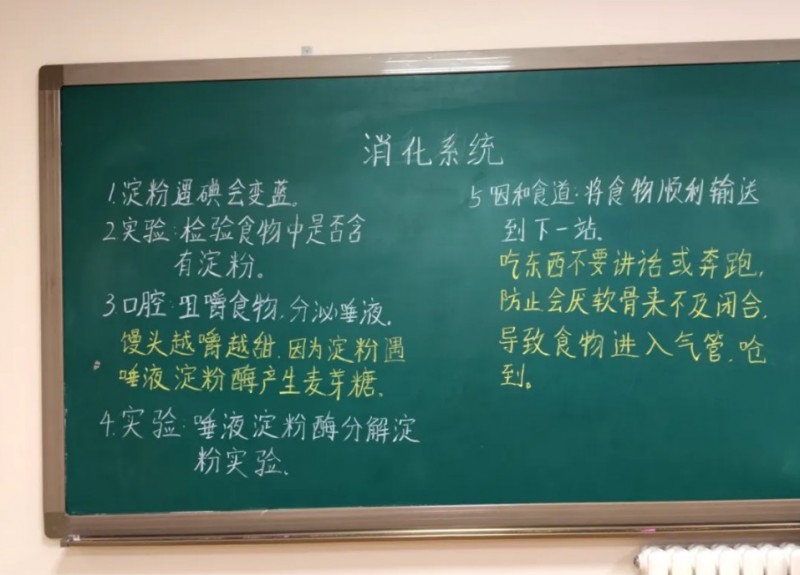 消化系统
1.淀粉遇碘会变蓝。
2.实验:检验食物中是否含
有淀粉。
3.口腔:咀嚼食物,分泌唾液,
馒头越嚼越甜,因为淀粉遇
唾液淀粉酶产生麦芽糖.
4.实验:唾液淀粉酶分解淀
粉实验.
5 咽和食道:将食物顺利输送
到下一站.
吃东西不要讲话或奔跑,
防止会厌软骨来不及闭合,
导致食物进入气管,呛
到。